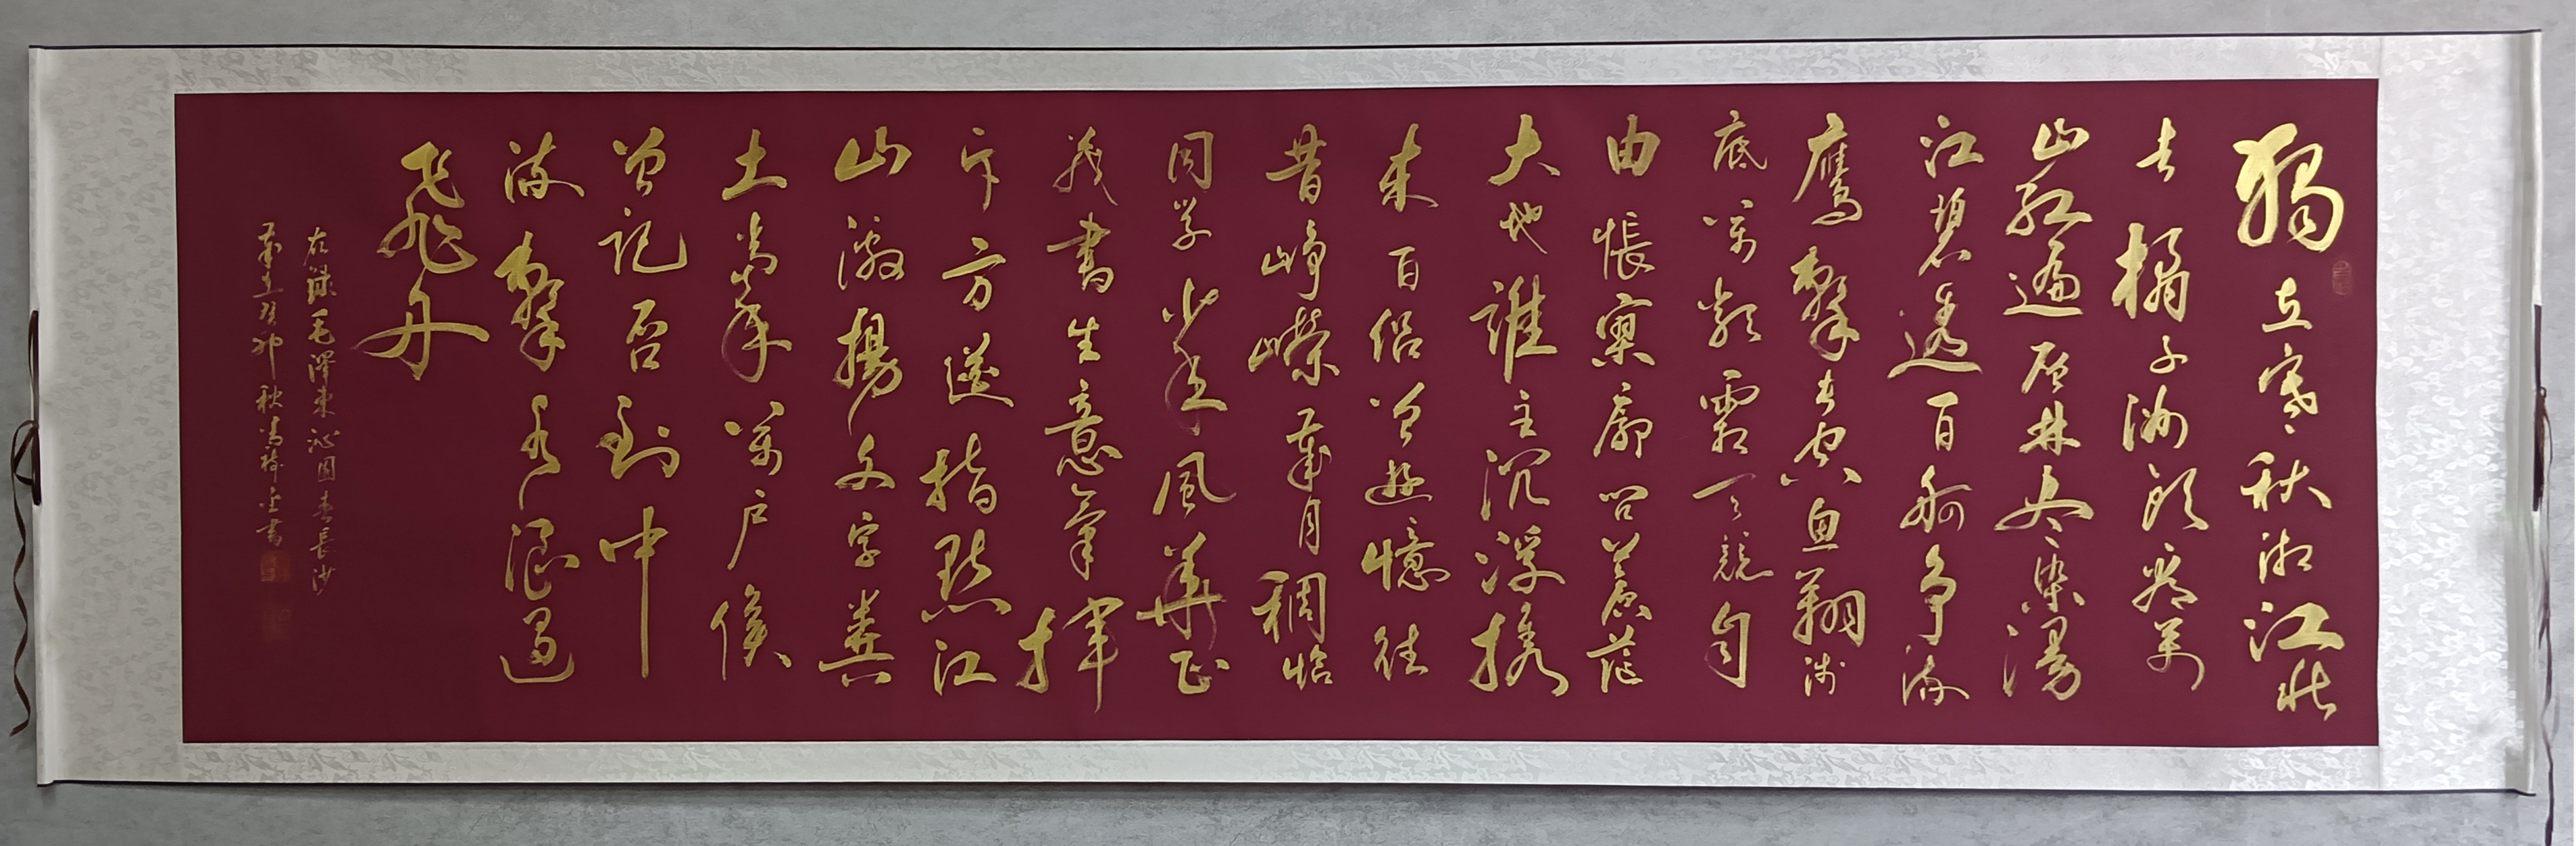 獨立寒秋湘江北
去橘子洲頭看萬
山紅遍层林尽染漫
江碧透百舸争流
鷹擊長空魚翔淺
底萬類霜天競自
由悵寥廓問蒼茫
大地誰主沉浮携
来百侣曾遊憶往
昔崢嶸歲月稠恰
同学少年風華正
茂書生意氣揮
斥方遒指點江
山激揚文字糞
土當年萬戶侯
曾記否到中
流擊水浪遏
飛舟
右録毛澤東沁園春長沙
歲在癸卯秋書